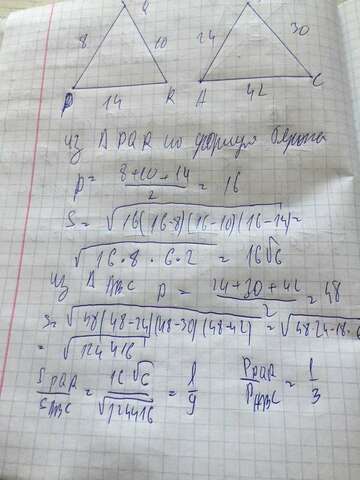 Q
8 10 24 30
P R A C
14 42
из Δ PQR по формуле Герона
P = 8+10+14 / 2 = 16
S = √16(16-8)(16-10)(16-14) =
√16·8·6·2 = 16√6
из Δ ABC P = 24+30+42 / 2 = 48
S = √48(48-24)(48-30)(48-42) = √48·24·18·6
= √124416
S PQR / S ABC = 16√6 / √124416 = 1/9 P PQR / P ABC = 1/3